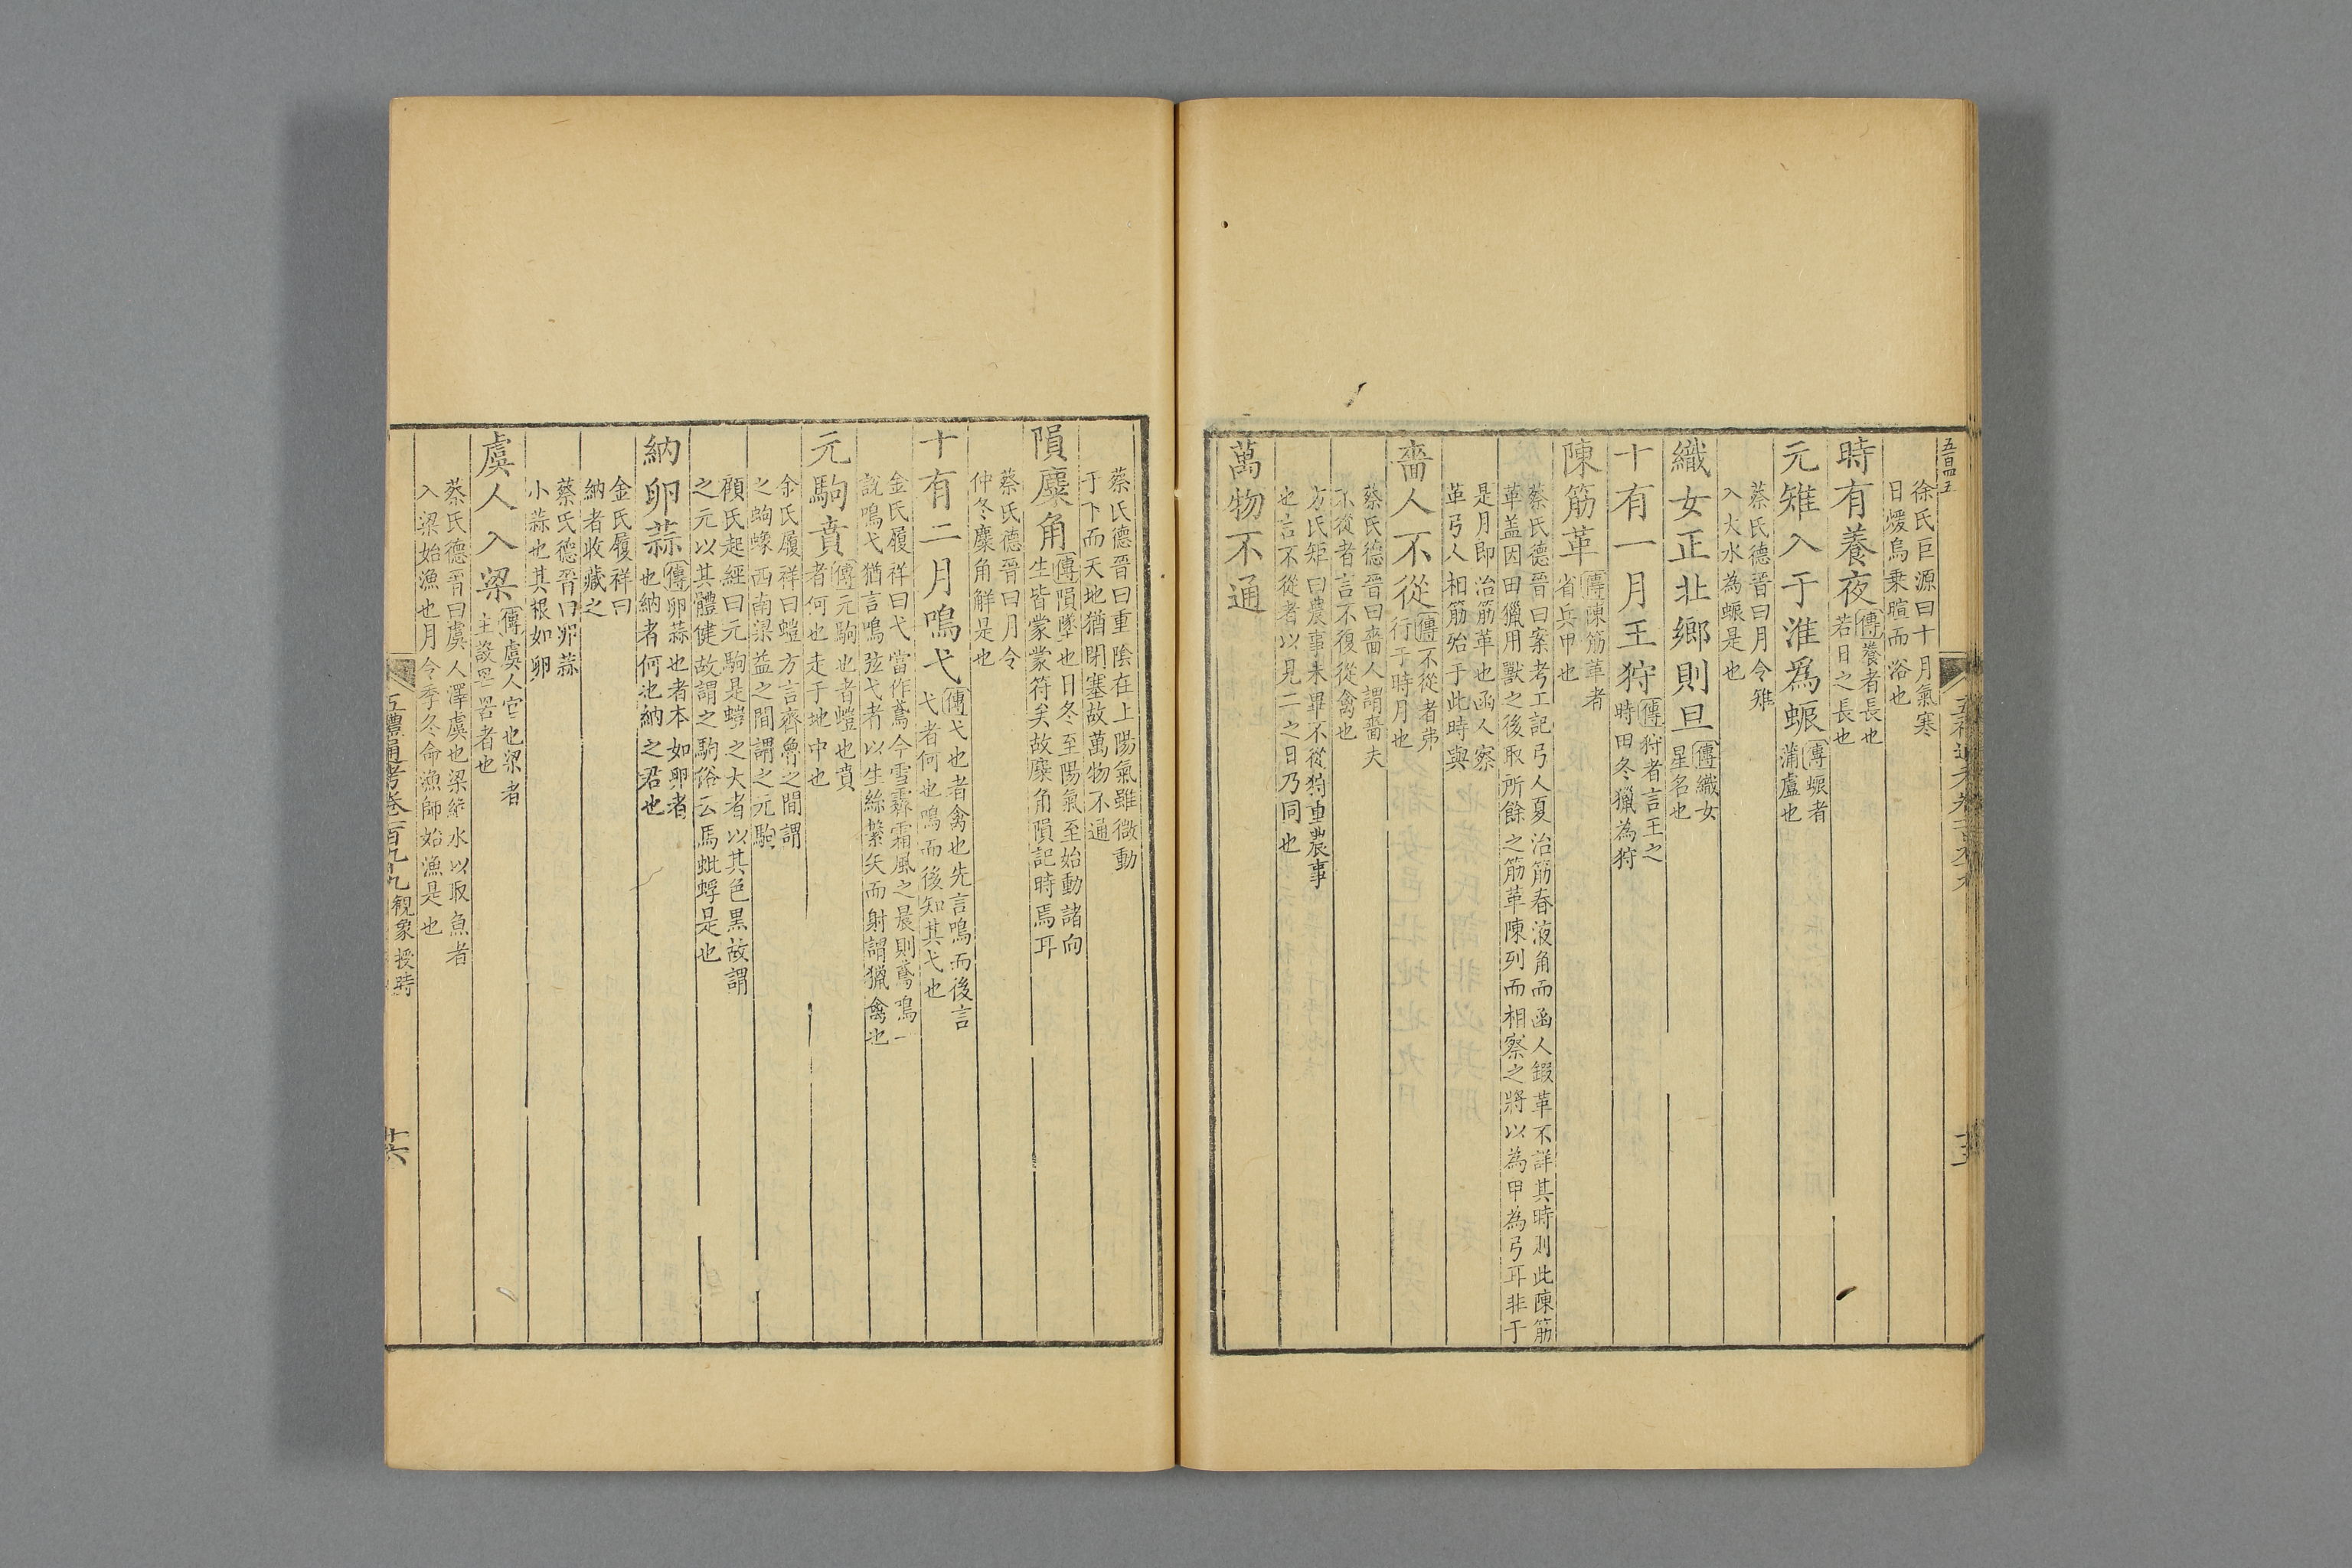 徐氏巨源曰十月氣寒
日煖烏乘暄而浴也
時有養夜傳養者長也
若日之長也
元雉入于淮爲蜃傳蜃者
蒲盧也
蔡氏德晉曰月令雉
入大水為蜃是也
織女正北鄉則旦傳織女
星名也
十有一月王狩傳狩者言王之
時田冬獵為狩
陳筋革傳陳筋革者
省兵甲也
蔡氏德晉曰案考工記弓人夏治筋春液角而函人鍜革不詳其時則此陳筋
革盖因田獵用獸之後取所餘之筋革陳列而相察之將以為甲為弓耳非于
是月即治筋革也函人察
革弓人相筋殆于此時與
嗇人不從傳不從者弗
行于時月也
蔡氏德晉曰嗇人謂嗇夫
不從者言不復從禽也
方氏矩曰農事未畢不從狩重農事
也言不從者以見二之日乃同也
萬物不通
蔡氏德晉曰重陰在上陽氣雖微動
于下而天地猶閉塞故萬物不通
隕麋角傳隕墜也日冬至陽氣至始動諸向
生皆蒙蒙符矣故麋角隕記時焉耳
蔡氏德晉曰月令
仲冬麋角解是也
十有二月鳴弋傳弋也者禽也先言鳴而後言
弋者何也鳴而後知其弋也
金氏履祥曰弋當作鳶今雪霽霜風之晨則鳶鳴一
說鳴弋猶言鳴弦弋者以生絲繫矢而射謂獵禽也
元駒賁傳元駒也者螘也賁
者何也走于地中也
余氏履祥曰螘方言齊魯之間謂
之蚼蟓西南梁益之間謂之元駒
顧氏起經曰元駒是螘之大者以其色黑故謂
之元以其體健故謂之駒俗云馬蚍蜉是也
納卵蒜傳卵蒜也者本如卵者
也納者何也納之君也
金氏履祥曰
納者收藏之
蔡氏德晉曰卵蒜
小蒜也其根如卵
虞人入梁傳虞人官也梁者
主設罟罟者也
蔡氏德晉曰虞人澤虞也梁絶水以取魚者
入梁始漁也月令季冬命漁師始漁是也
五禮通考卷一百九十九觀象授時
十六